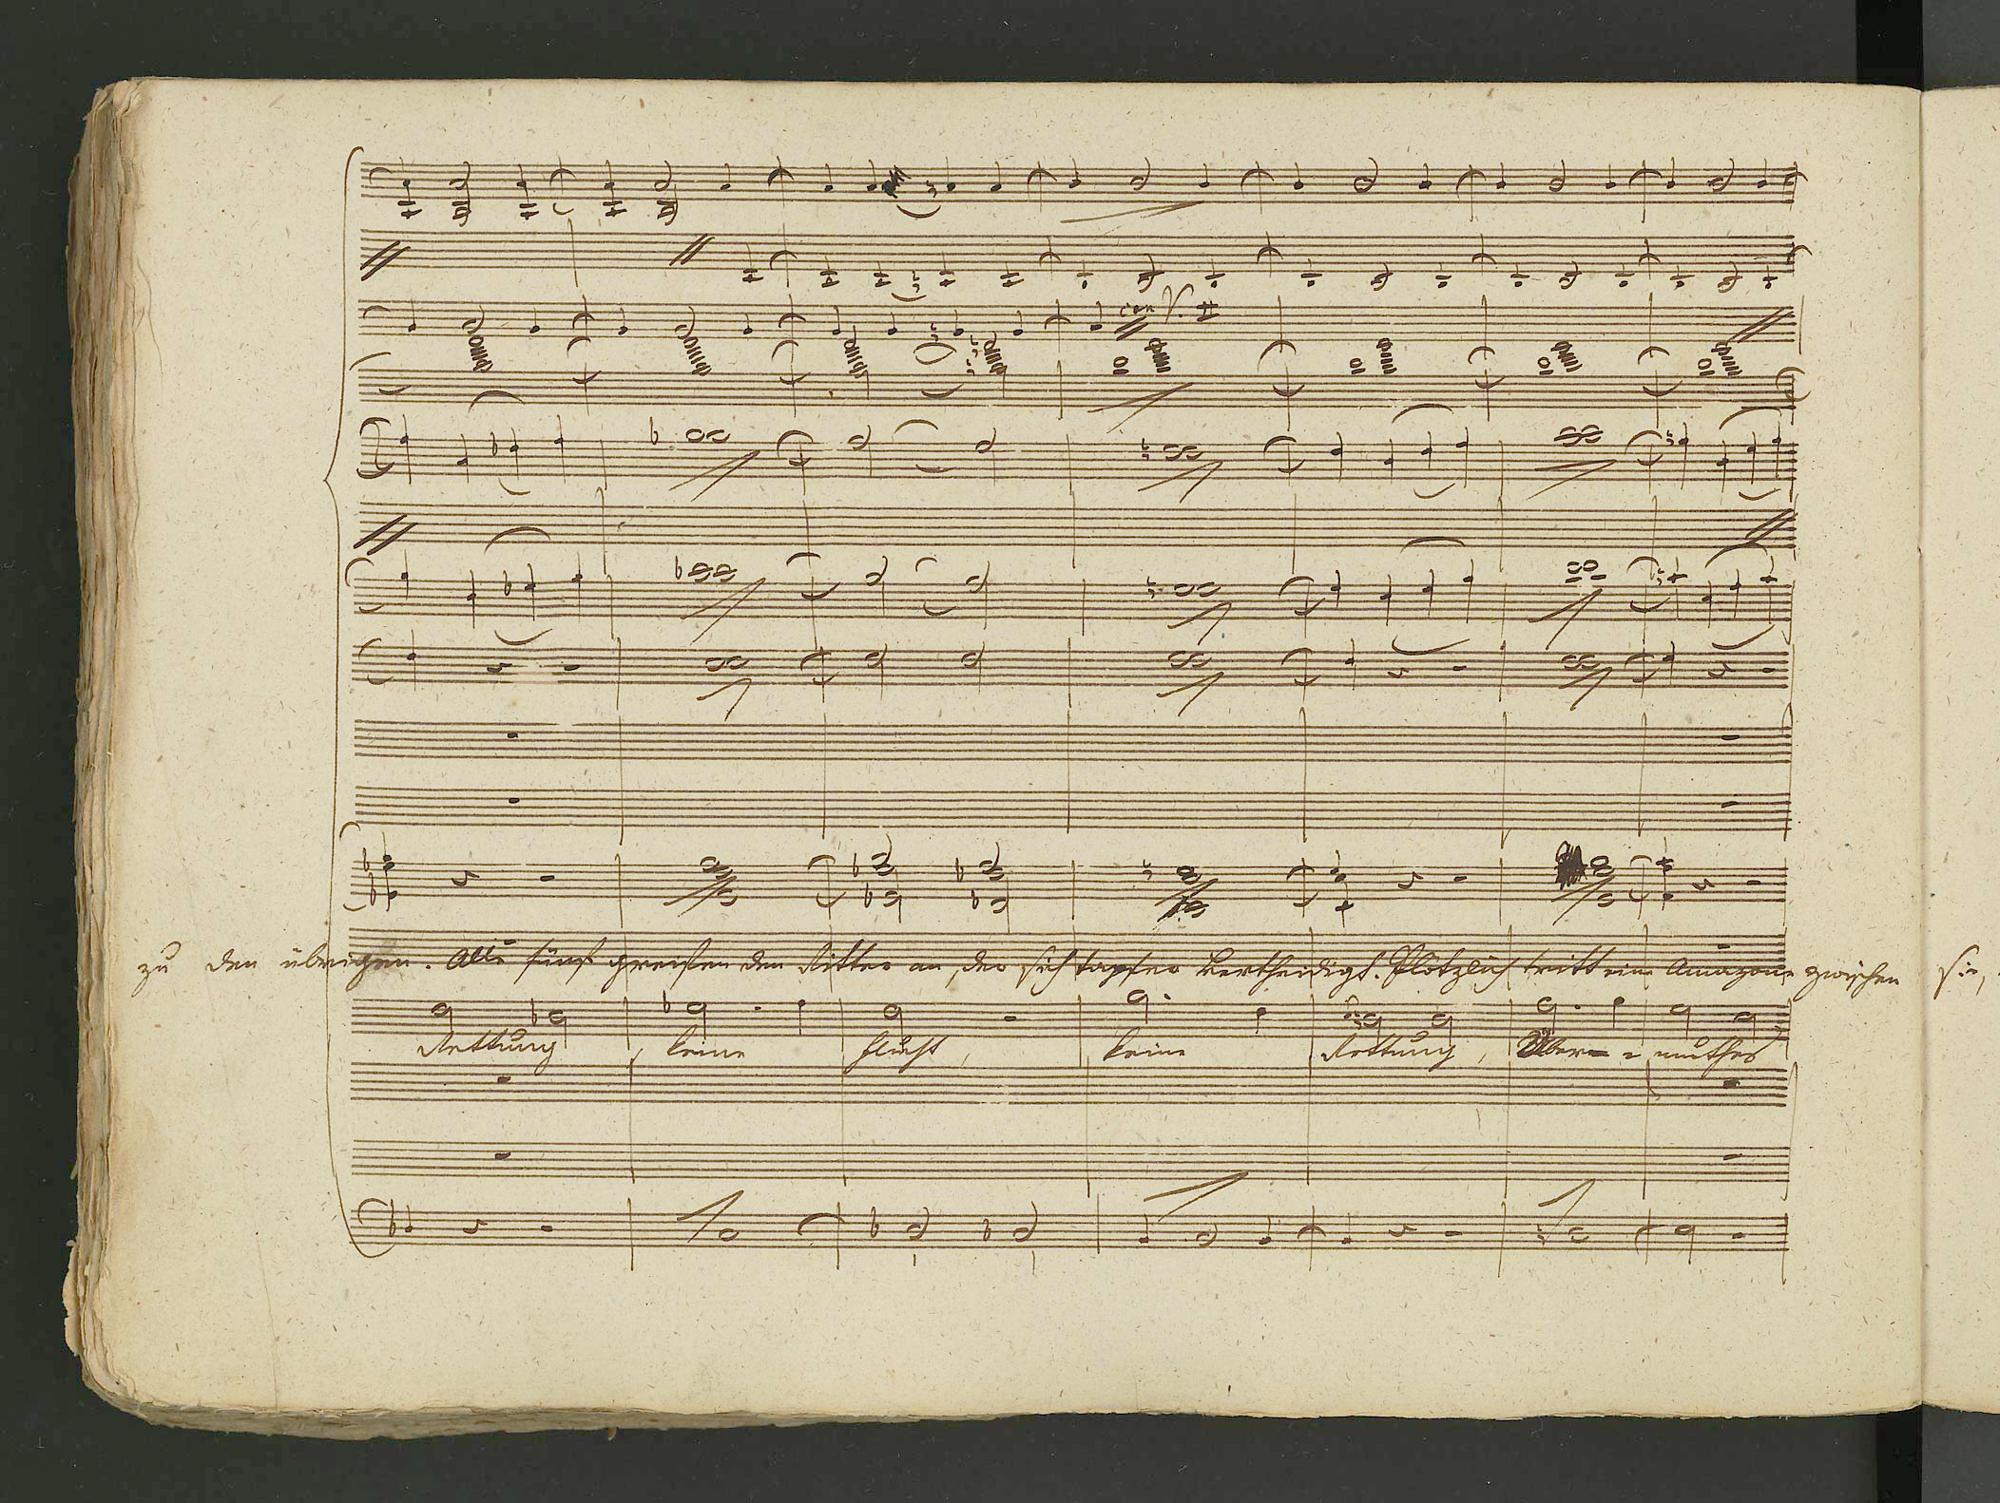 con V.
zu den übrigen. Alle fünf greifen den Ritter an, der sich tapfer vertheidigt. Plötzlich tritt eine Amazone zwischen sie,
Rettung, keine Flucht, keine Rettung, Über= = muthes